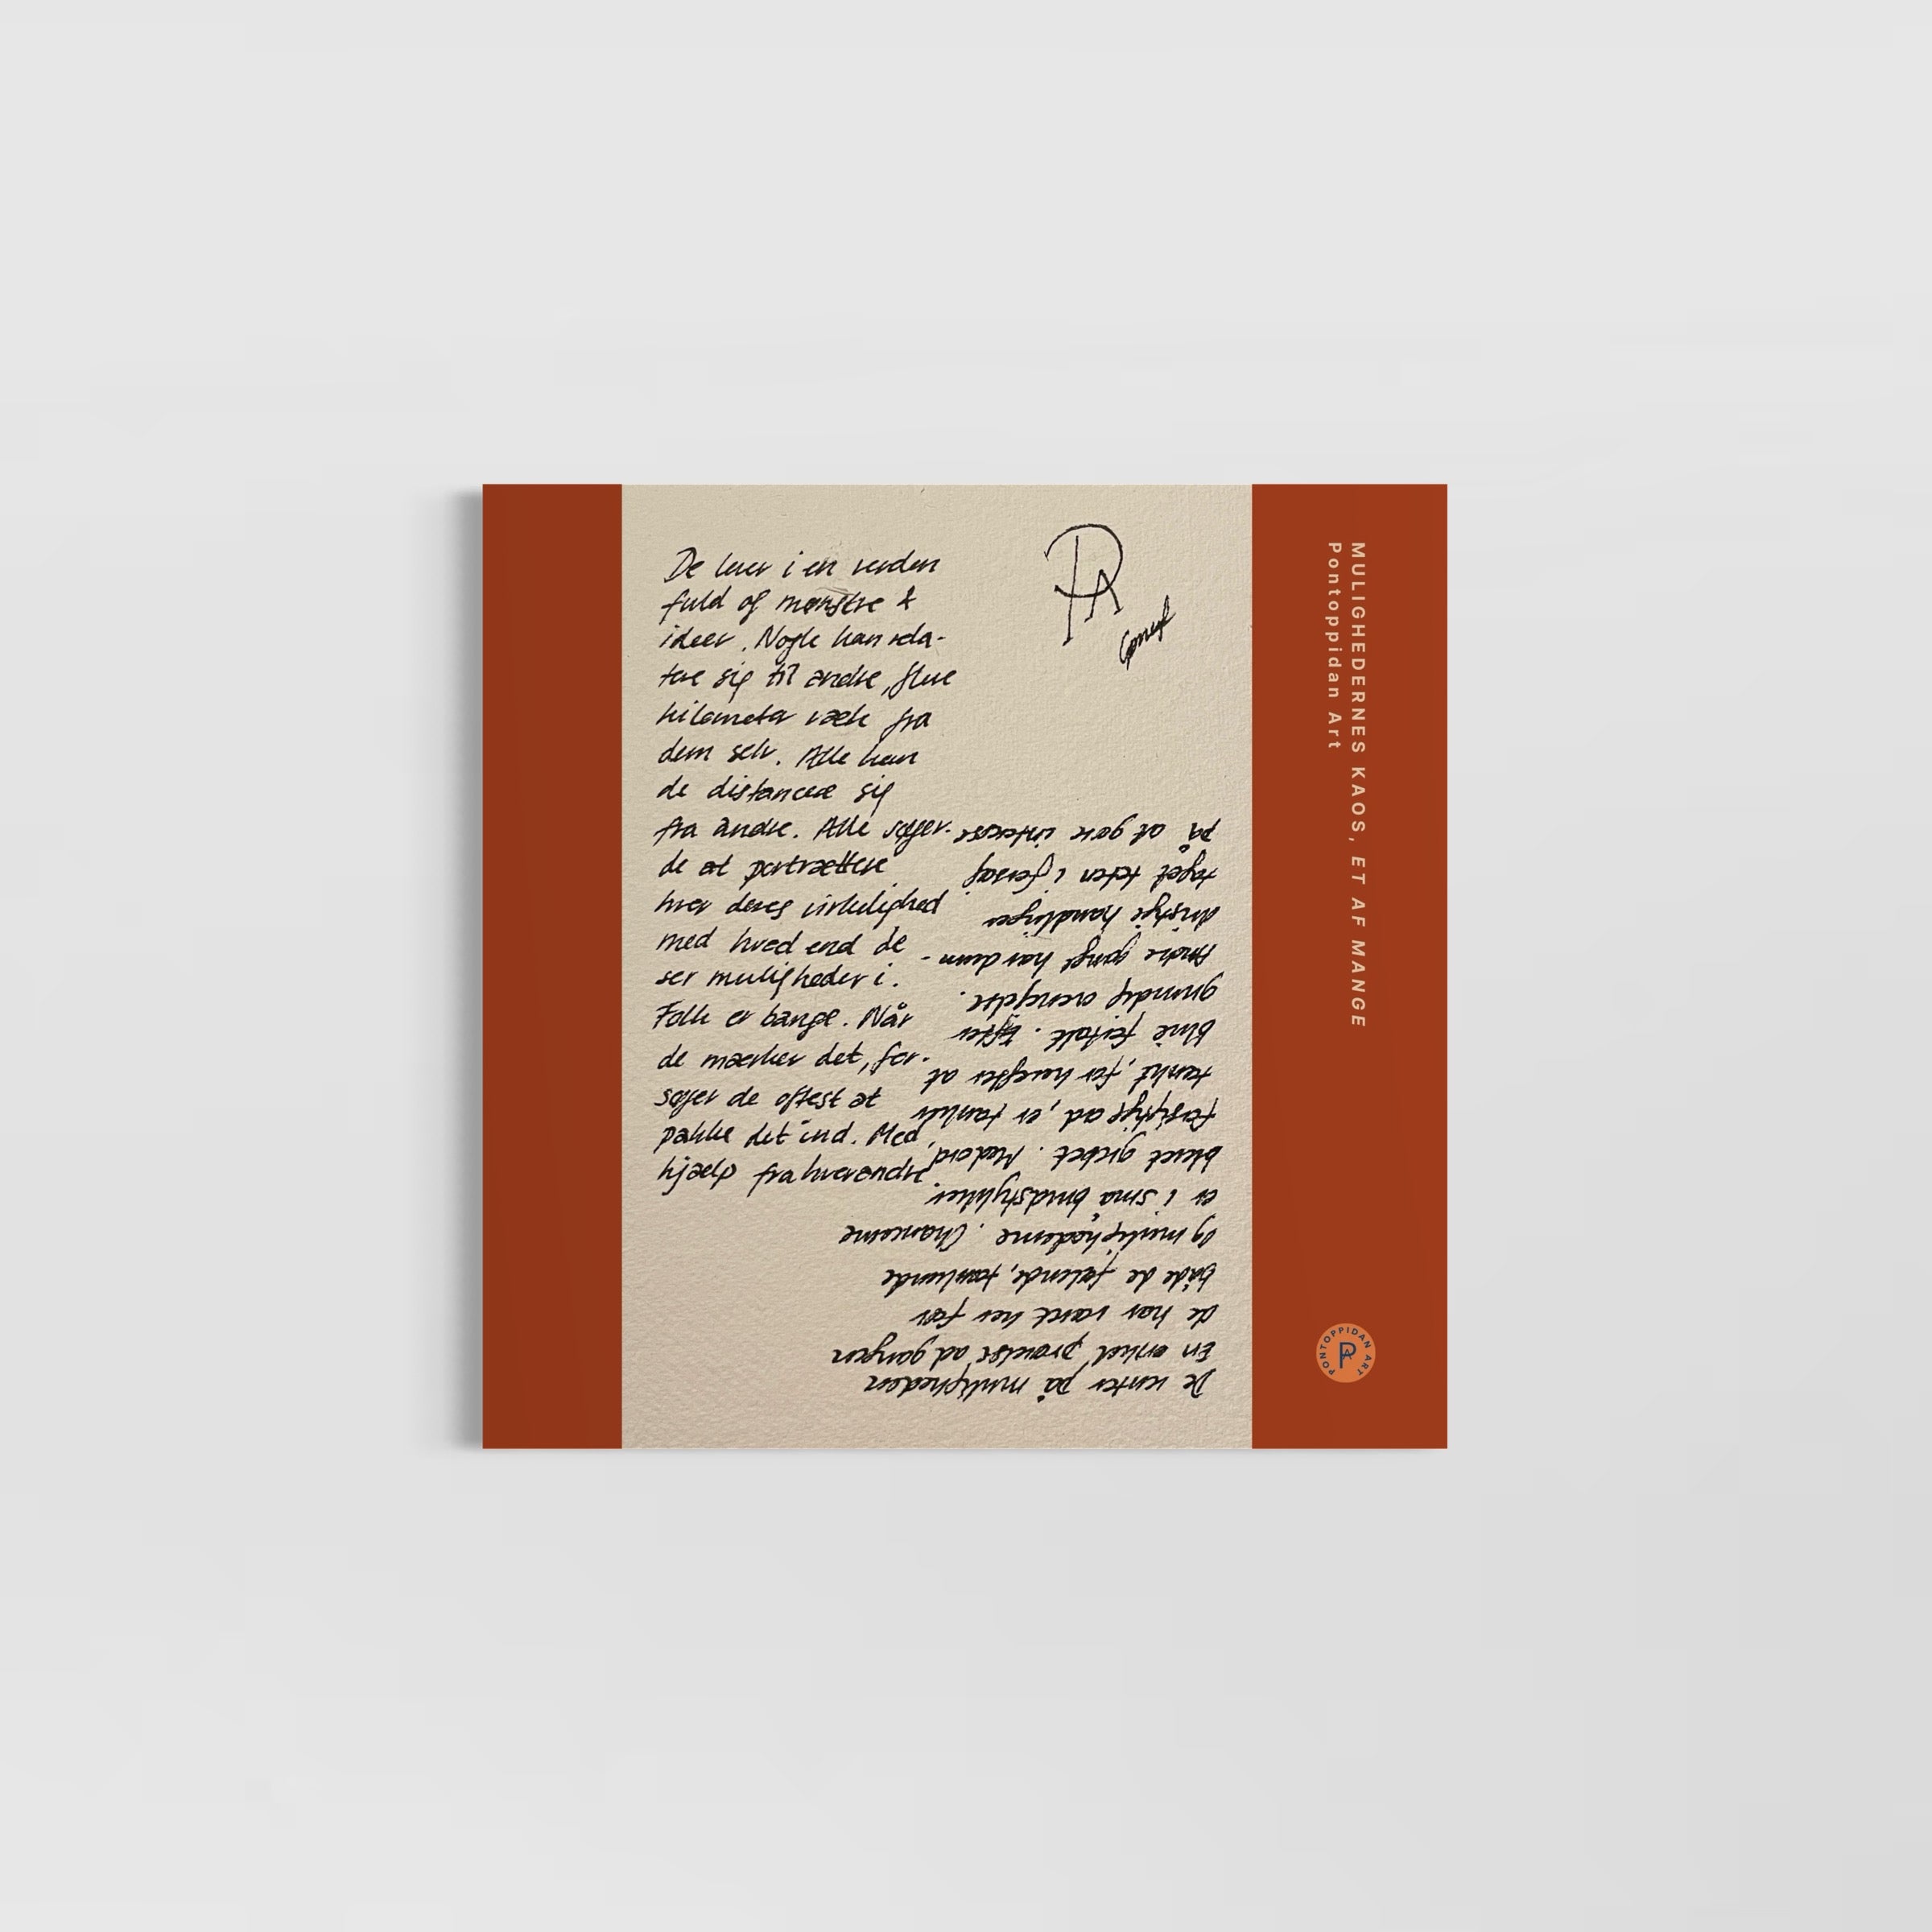 De lever i en verden
fuld af mønstre &
ideer. Nogle kan rela-
tere sig til andre, flere
kilometer væk fra
dem selv. Alle kan
de distancere sig
fra andre. Alle søger
de at portrættere
hver deres virkelighed
med hvad end de
ser muligheder i.
Folk er bange. Når
de mærker det, for-
søger de oftest at
pakke det ind. Med
hjælp fra hverandre.
De venter på muligheden
En enkel prøvelse ad gangen
de har været her før
både de følende, tænkende
og mulighederne. Chancerne
er i små brudstykker
blevet grebet. Med ord,
forsigtigt ad, er tanker
tænkt, for herefter at
blive fortalt. Efter
grundig overvejelse.
Andre gange har dum-
dristige handlinger
taget teten i forsøg
på at gøre interesse
PA
MULIGHEDERNES KAOS, ET AF MANGE
Pontoppidan Art
PONTOPPIDAN ART
PA